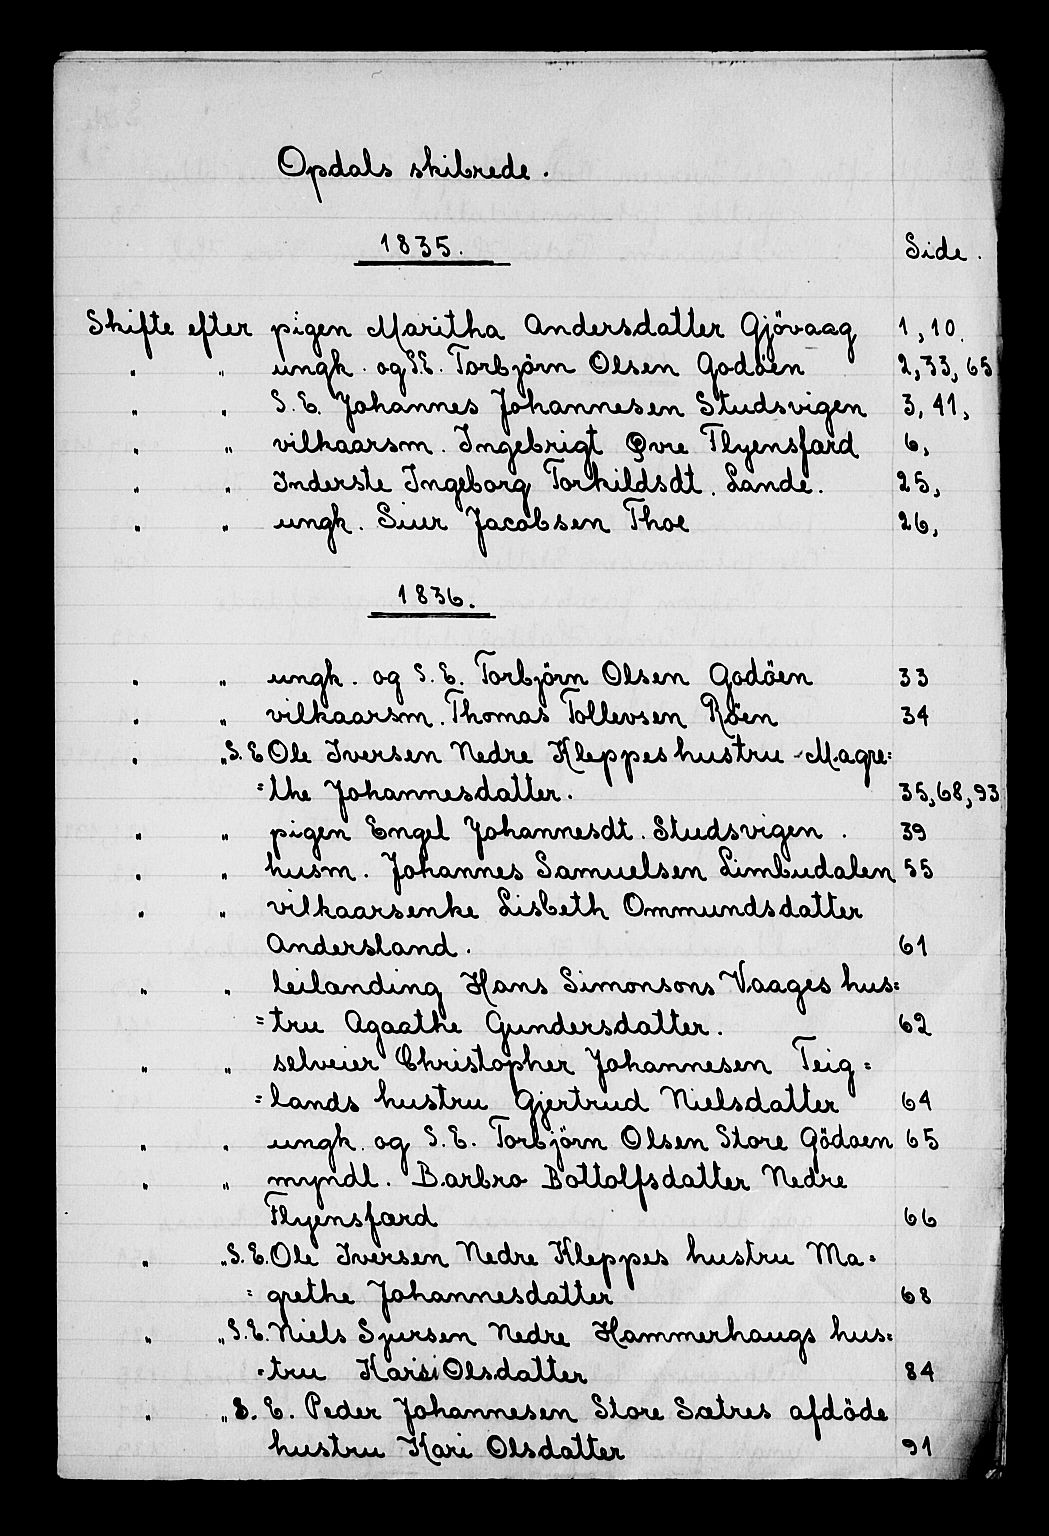 Opdals skibrede.
1835. Side.
Skifte efter pigen Maritha Andersdatter Gjövaag 1, 10.
" " ungk. og S.E. Torbjörn Olsen Godöen 2, 33, 65
" " S.E. Johannes Johannesen Studsvigen 3, 41,
" " vilkaarsm. Ingebrigt Øvre Flyensfærd 6,
" " Inderste Ingeborg Torkildsdt. Lande. 25,
" " ungk. Siur Jacobsen Thoe 26,
1836.
" " ungk. og S.E. Torbjörn Olsen Godöen 33
" " vilkaarsm. Thomas Tollevsen Röen 34
" " S.E. Ole Iversen Nedre Kleppes hustru Magre=
=the Johannesdatter. 35, 68, 93
" " pigen Engel Johannesdt. Studsvigen. 39
" " husm. Johannes Samuelsen Limbudalen 55
" " vilkaarsenke Lisbeth Ommundsdatter
Andersland. 61
" " leilænding Hans Simonsons Vaages hus=
=tru Agaathe Gundersdatter. 62
" " selveier Christopher Johannesen Teig=
=lands hustru Gjertrud Nielsdatter 64
" " ungk. og S.E. Torbjörn Olsen Store Gödøen 65
" " myndl. Barbro Bottolfsdatter Nedre
Flyensfærd 66
" " S.E. Ole Iversen Nedre Kleppes hustru Ma=
=grethe Johannesdatter 68
" " S.E. Niels Sjursen Nedre Hammerhaugs hus=
=tru Karsi Olsdatter 84
" " S.E. Peder Johannesen Store Sætres afdöde
hustru Kari Olsdatter 91